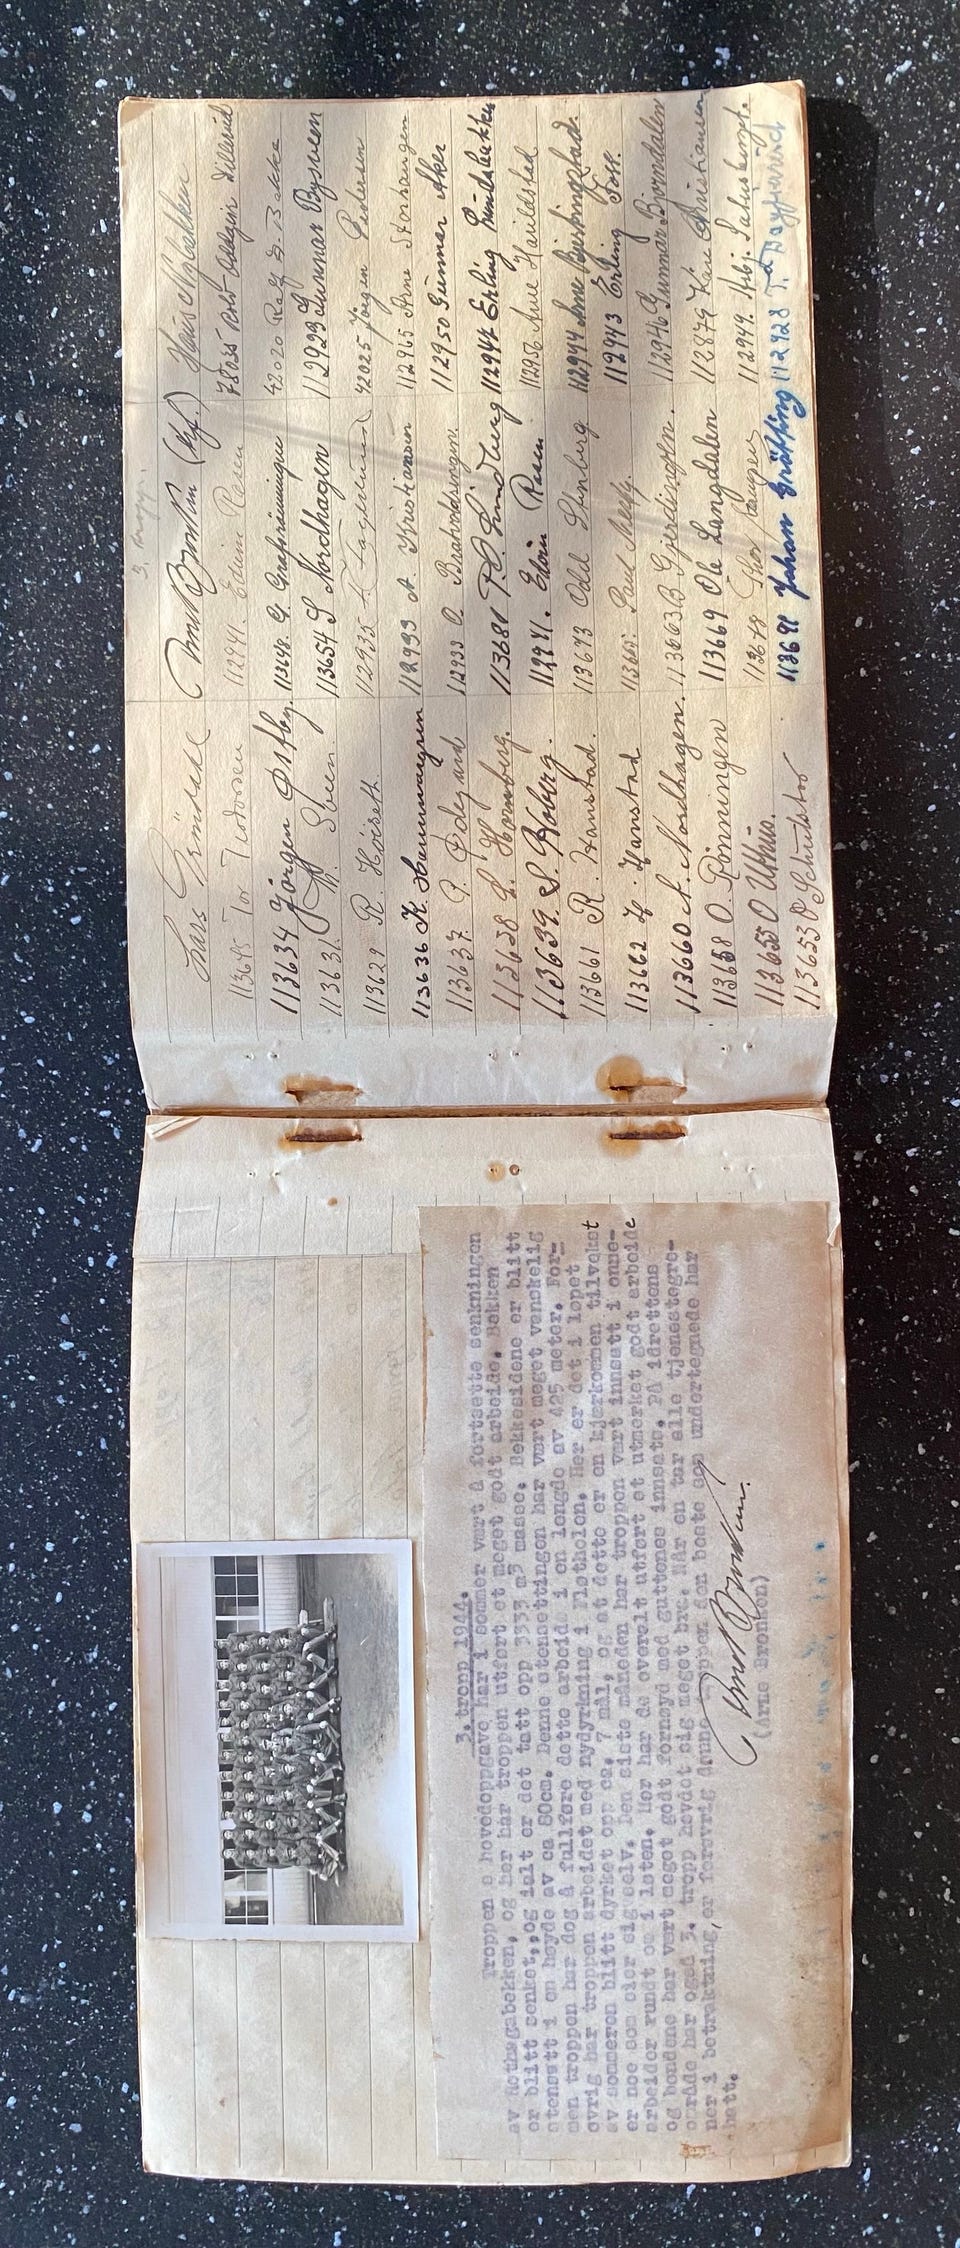 3. tropp 1944.
Troppen s hovedoppgave har i sommer vært å fortsette senkningen
av Rotnagabekken, og her har troppen utført et meget godt arbeide. Bekken
er blitt senket, og ialt er det tatt opp 3333 m3 masse. Bekkesidene er blitt
stensatt i en høyde av ca 80cm. Denne stensettingen har vært meget vanskelig
men troppen har dog å fullføre dette arbeid i en lengde av 425 meter. For-
øvrig har troppen arbeidet med nydyrkning i Fløtholen. Her er det i løpet
av sommeren blitt dyrket opp ca. 7 mål, og at dette er en kjærkommen tilvekst
er noe som sier sig selv. Den siste måneden har troppen vært innsatt i onne-
arbeider rundt om i Løten. Her har de overalt utført et utmerket godt arbeide
og bøndene har vært meget godt fornøyd med guttenes innsats. På idrettens
område har også 3. tropp hevdet sig meget bra. Når en tar alle tjenestegre-
ner i betraktning, er forøvrig denne troppen den beste som undertegnede har
hatt.
(Arne Bronken)
3. tropp.
Lars
113645 Tor
113634 Jørgen Østby.
113631. Steen.
113629 R. Høiseth
113636 K. Hammergren
113637 P. Ødegård
113628 L. Hornberg.
113639. S. Hoberg.
113661 R. Hanstad.
113662 H. Hanstad
113660 A. Nordhagen.
113658 O. Rønningen
113655 O Uthus.
113653 O Schulstad
Arne Bronken (Kf.)
112941. Edvin Roen
113648. G. Grafsrønningen
113654 S Nordhagen
112935
112933 A. Kristiansen
112933 O. Bratvoldsengen.
113681 P. O. Lindberg
112941. Edvin Roen
113673 Odd Stenberg
Paul
113663 B Gjerdingen.
113669 Ole Langdalen
113678 Thor Haugen
113691 Johan Gräffing
Hans Nylokken
78035 Rolf Oddgeir Lillevid
42020 Rolf S. Bakke
112929 Gunnar Bysveen
42025 Jørgen Pedersen
112965 Arne Storhaugen
112950 Gunnar Aker
112944 Erling Lundsbakken
112956 Arne Haraldstad
112944 Arne
112943 Erling Foss.
112946 Gunnar Bjørndalen
112879 Kåre Christiansen
112949. Arbj.
112928 T.